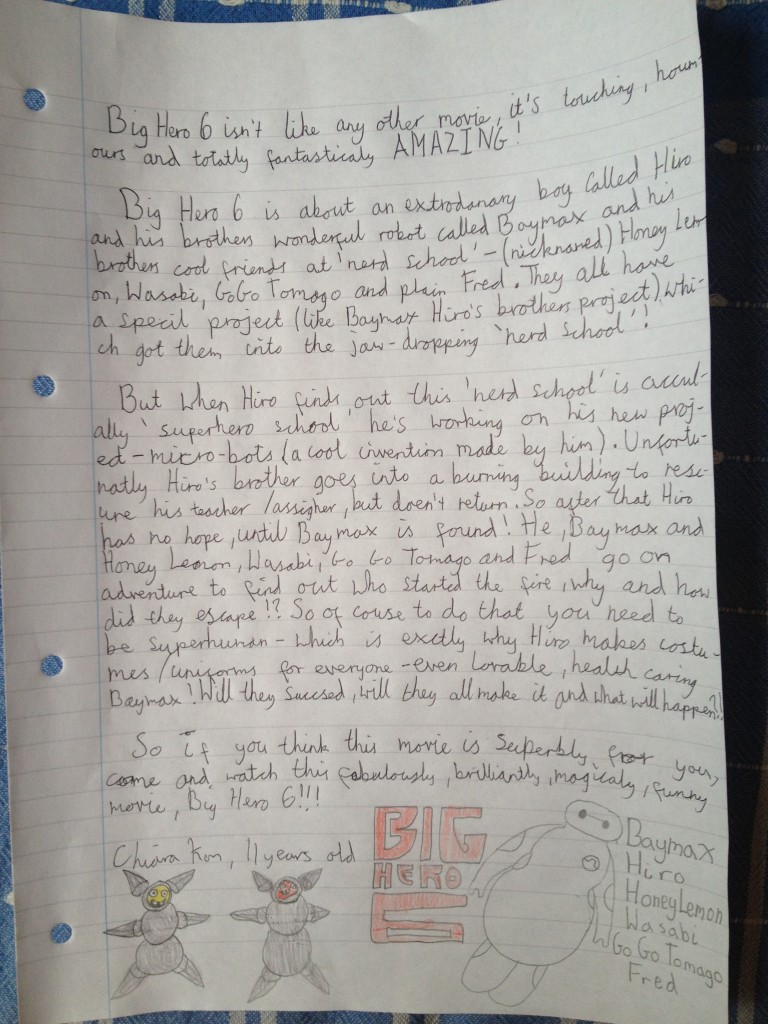 Big Hero 6 isn't like any other movie, it's touching, houm-
ours and totatly fantasticaly AMAZING!
Big Hero 6 is about an extrodanary boy called Hiro
and his brothers wonderful robot called Baymax and his
brothers cool friends at 'nerd school' - (nicknamed) Honey Lem-
on, Wasabi, GoGo Tomago and plain Fred. They all have
a specil project (like Baymax Hiro's brothers project), whi-
ch got them into the jaw-dropping 'nerd school'!
But when Hiro finds out this 'nerd school' is accul-
ally 'superhero school' he's working on his new proj-
ect - micro-bots (a cool invention made by him). Unfortu-
natly Hiro's brother goes into a burning building to resc-
ure his teacher/assigher, but doen't return. So after that Hiro
has no hope, until Baymax is found! He, Baymax and
Honey Lemon, Wasabi, Go Go Tomago and Fred go on
adventure to find out who started the fire, why and how
did they escape!? So of couse to do that you need to
be superhuman - which is exctly why Hiro makes costu-
mes/uniforms for everyone - even lovable, health caring
Baymax! Will they succsed, will they all make it and what will happen?!
So if you think this movie is superbly for you,
come and watch this fabulously, brilliantly, magicaly, funny
movie, Big Hero 6!!!
Chiara Kon, 11 years old
BIG
HERO
6
Baymax
Hiro
Honey Lemon
Wasabi
Go Go Tomago
Fred